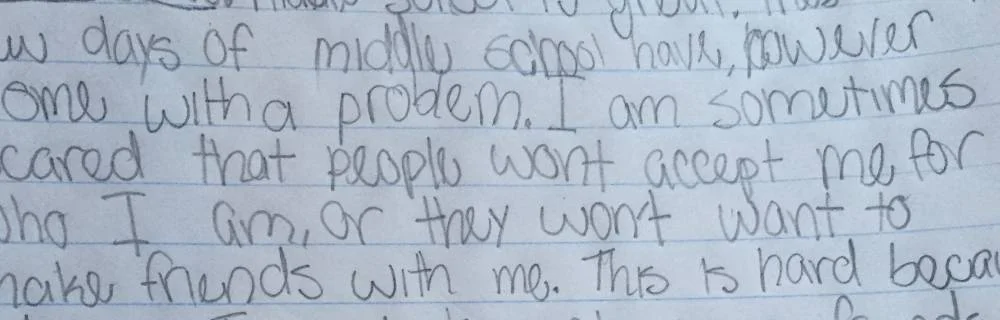 w days of middle school have, however
ome with a problem. I am sometimes
cared that people wont accept me for
ho I am, or they won't want to
make friends with me. This is hard becau